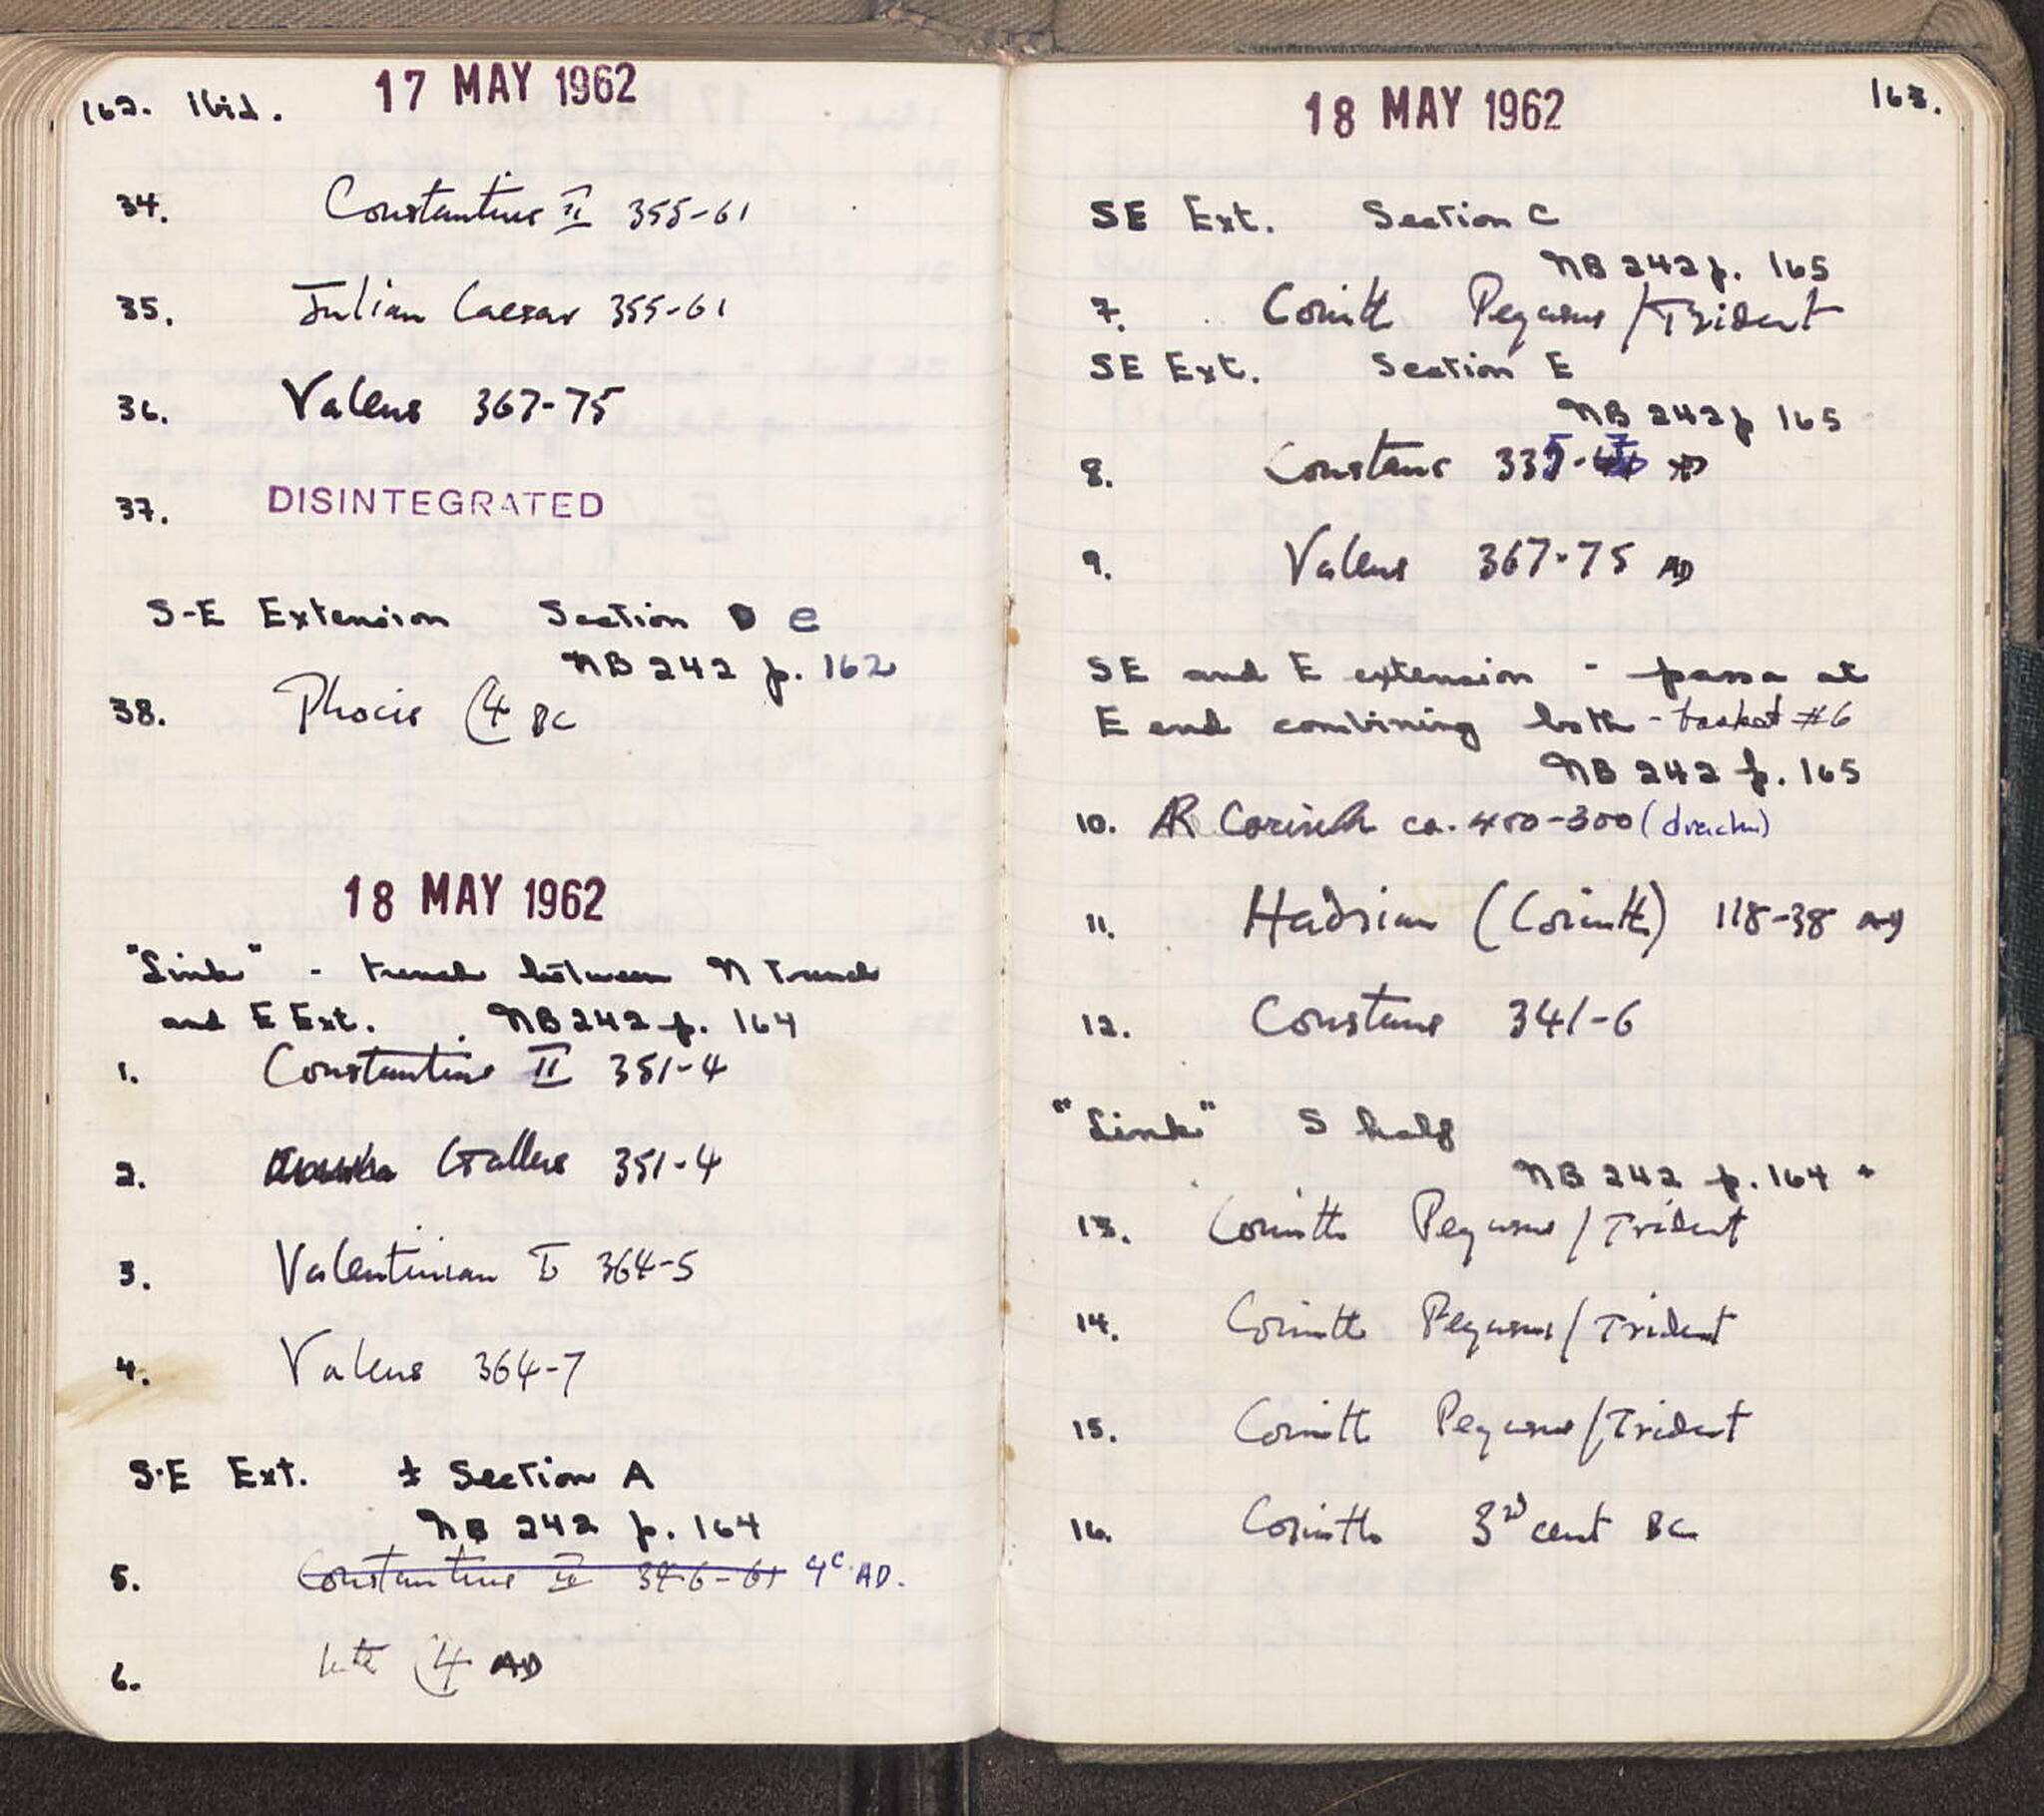 162. Ibid. 17 MAY 1962
34. Constantius II 355-61
35. Julian Caesar 355-61
36. Valens 367-75
37. DISINTEGRATED
S-E Extension Section e
NB 242 p. 162
38. Phocis C4 BC
18 MAY 1962
"Link" - trench between N Trench
and E Ext. NB 242 p. 164
1. Constantius II 351-4
2. Gallus 351-4
3. Valentinian I 364-5
4. Valens 364-7
S-E Ext. ± Section A
NB 242 p. 164
5. Constantius II 346-61 4c. AD.
6. late C4 AD
18 MAY 1962 163.
SE Ext. Section C
NB 242 p. 165
7. Corinth Pegasus/Trident
SE Ext. Section E
NB 242 p 165
8. Constans
9. Valens 367-75 AD
SE and E extension - passa at
E end combining both - basket #6
NB 242 p. 165
10. AR Corinth ca. 400-300 (drachm)
11. Hadrian (Corinth) 118-38 AD
12. Constans 341-6
"Link" S half
NB 242 p. 164 +
13. Corinth Pegasus/Trident
14. Corinth Pegasus/Trident
15. Corinth Pegasus/Trident
16. Corinth 3rd cent BC